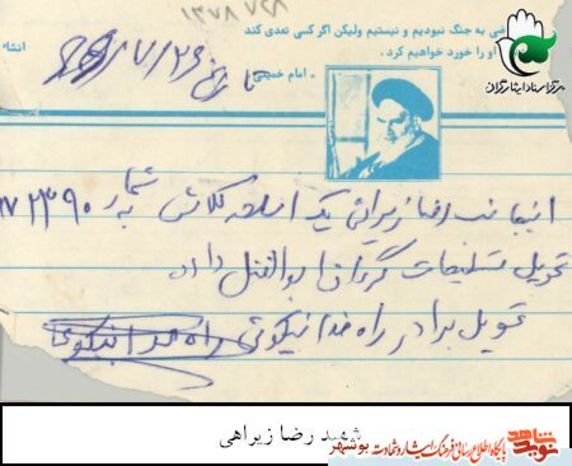 ۱۳۷۸۷۲۸
ضی به جنگ نبودیم و نیستیم ولیکن اگر کسی تعدی کند
او را خورد خواهیم کرد .
امام خمینی
انشاء
تاریخ ۷/۲۶
مرکز اسناد ایثارگران
اینجانب رضا زیرائی یک اسلحه کلاش شماره ۷۲۳۹۰
تحویل تسلیحات گردان ابوالفضل دادم
تحویل برادر راه خدا نیکوئی راه خدا نیکوئی
شهید رضا زیراهی
نوید شاهد
پایگاه اطلاع رسانی فرهنگ ایثار و شهادت بوشهر